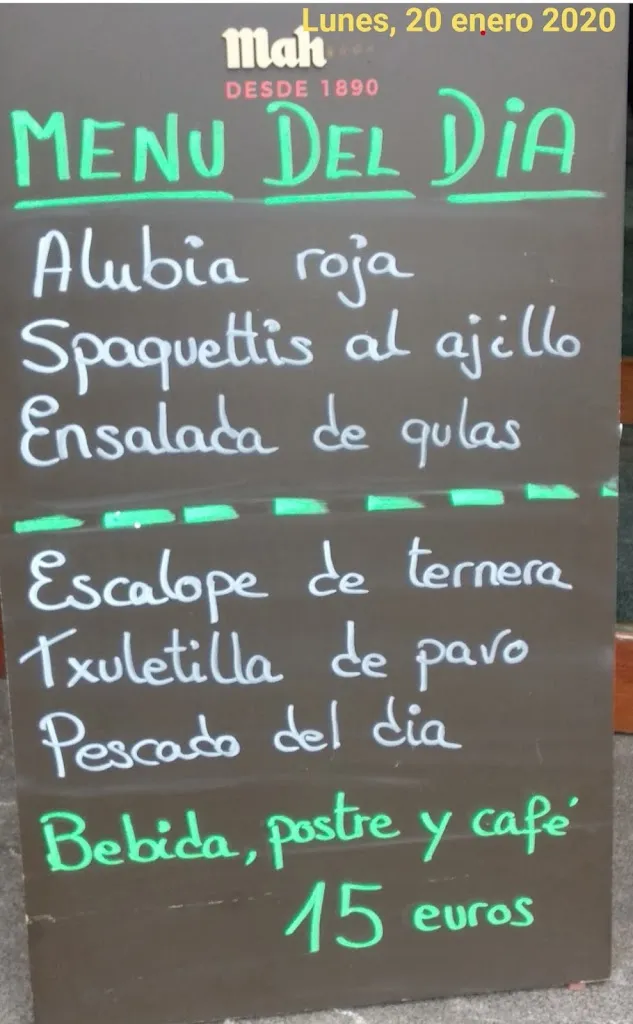 Lunes, 20 enero 2020
Mah
DESDE 1890
MENU DEL DiA
Alubia roja
Spaquettis al ajillo
Ensalada de gulas
Escalope de ternera
Txuletilla de pavo
Pescado del dia
Bebida, postre y café
15 euros